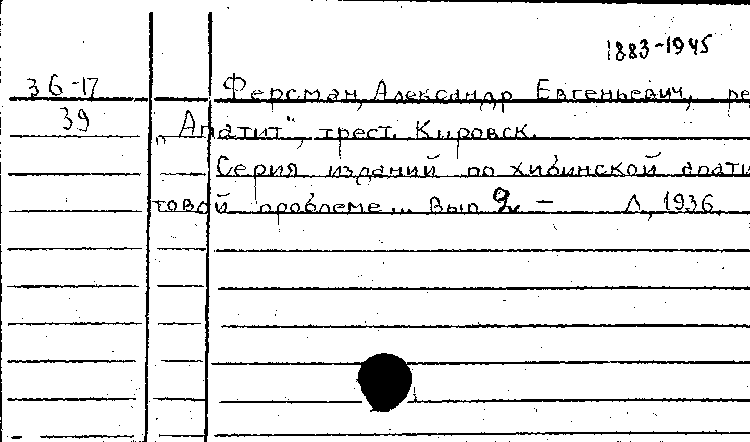 1883-1945
36-17 Ферсман, Александр Евгеньевич, ре
39 „Апатит", трест. Кировск.
Серия изданий по хибинской апати
товой проблеме... Вып 2. — Л, 1936.